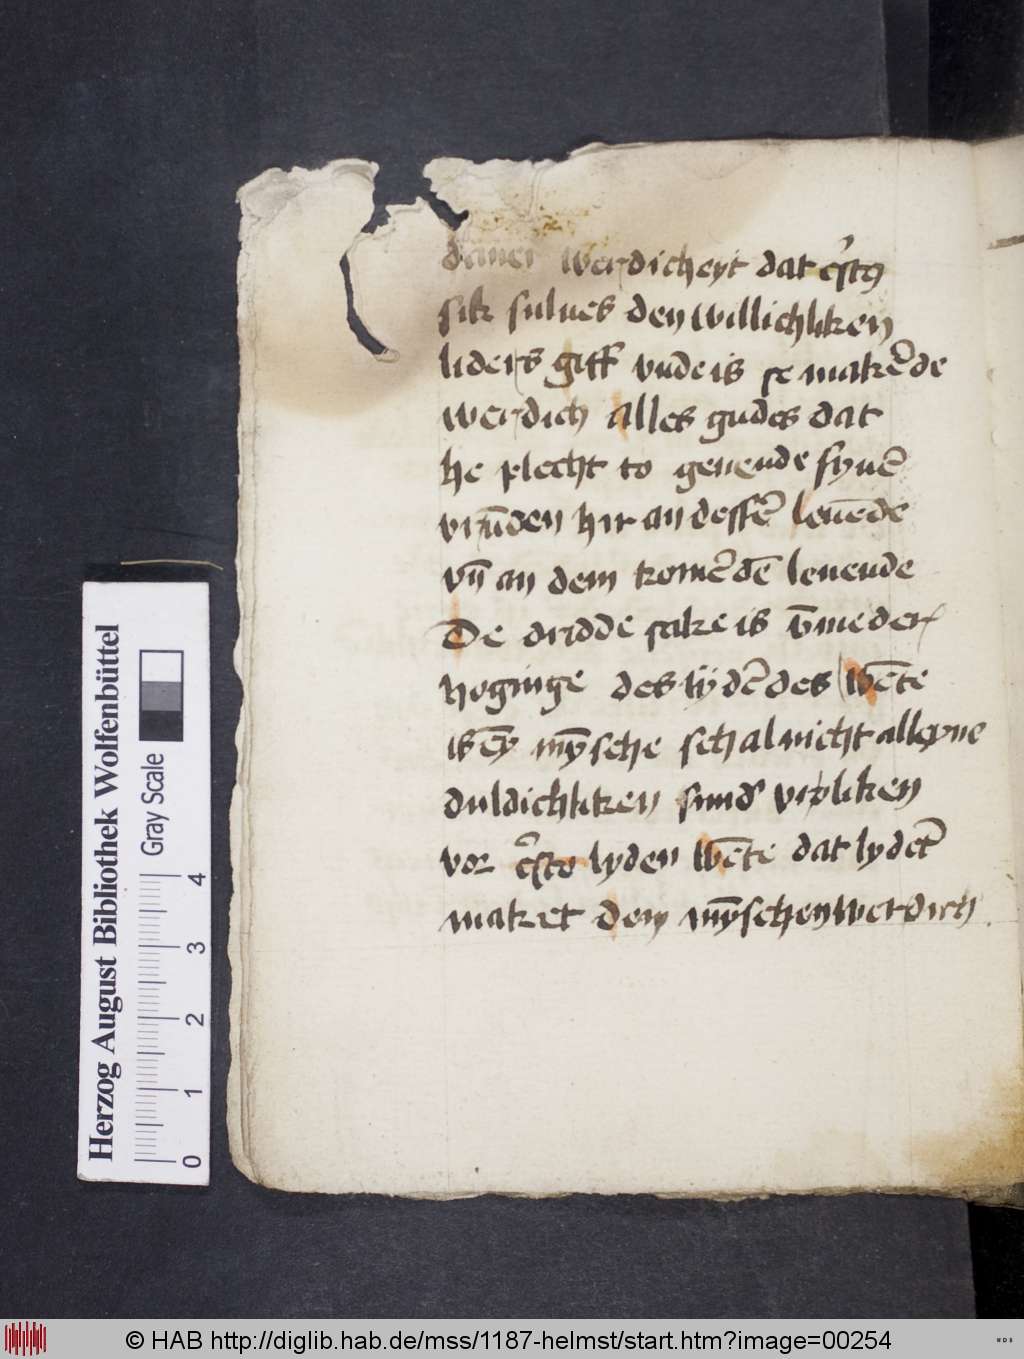 werdicheyt dat cr̄stꝰ
sik sulues den willichliken
liders giff vnde is se makēde
werdich alles gudes dat
he plecht to geuende synē
vrūden hir an dessē leuēde
vn̄ an dem komēdē leuende
De drudde sake is v̄mederf
noginge des lydēdes wēte
is ey̅ my̅sche schal nicht alleyne
duldichliken sund' vroliken
vor cr̄sto lyden wēte dat lydēt
maket den my̅schen werdich
Herzog August Bibliothek Wolfenbüttel
Gray Scale
0 1 2 3 4
© HAB http://diglib.hab.de/mss/1187-helmst/start.htm?image=00254